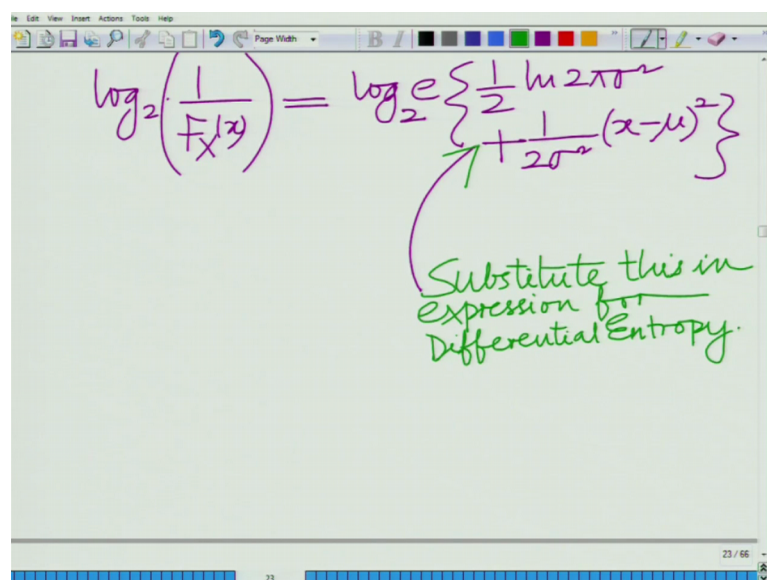 le Edit View Insert Actions Tools Help
Page Width B I
log₂(1/F_X(x)) = log₂e {1/2 ln 2πσ²
+ 1/2σ² (x-μ)²}
Substitute this in
expression for
Differential Entropy.
23 / 66
23